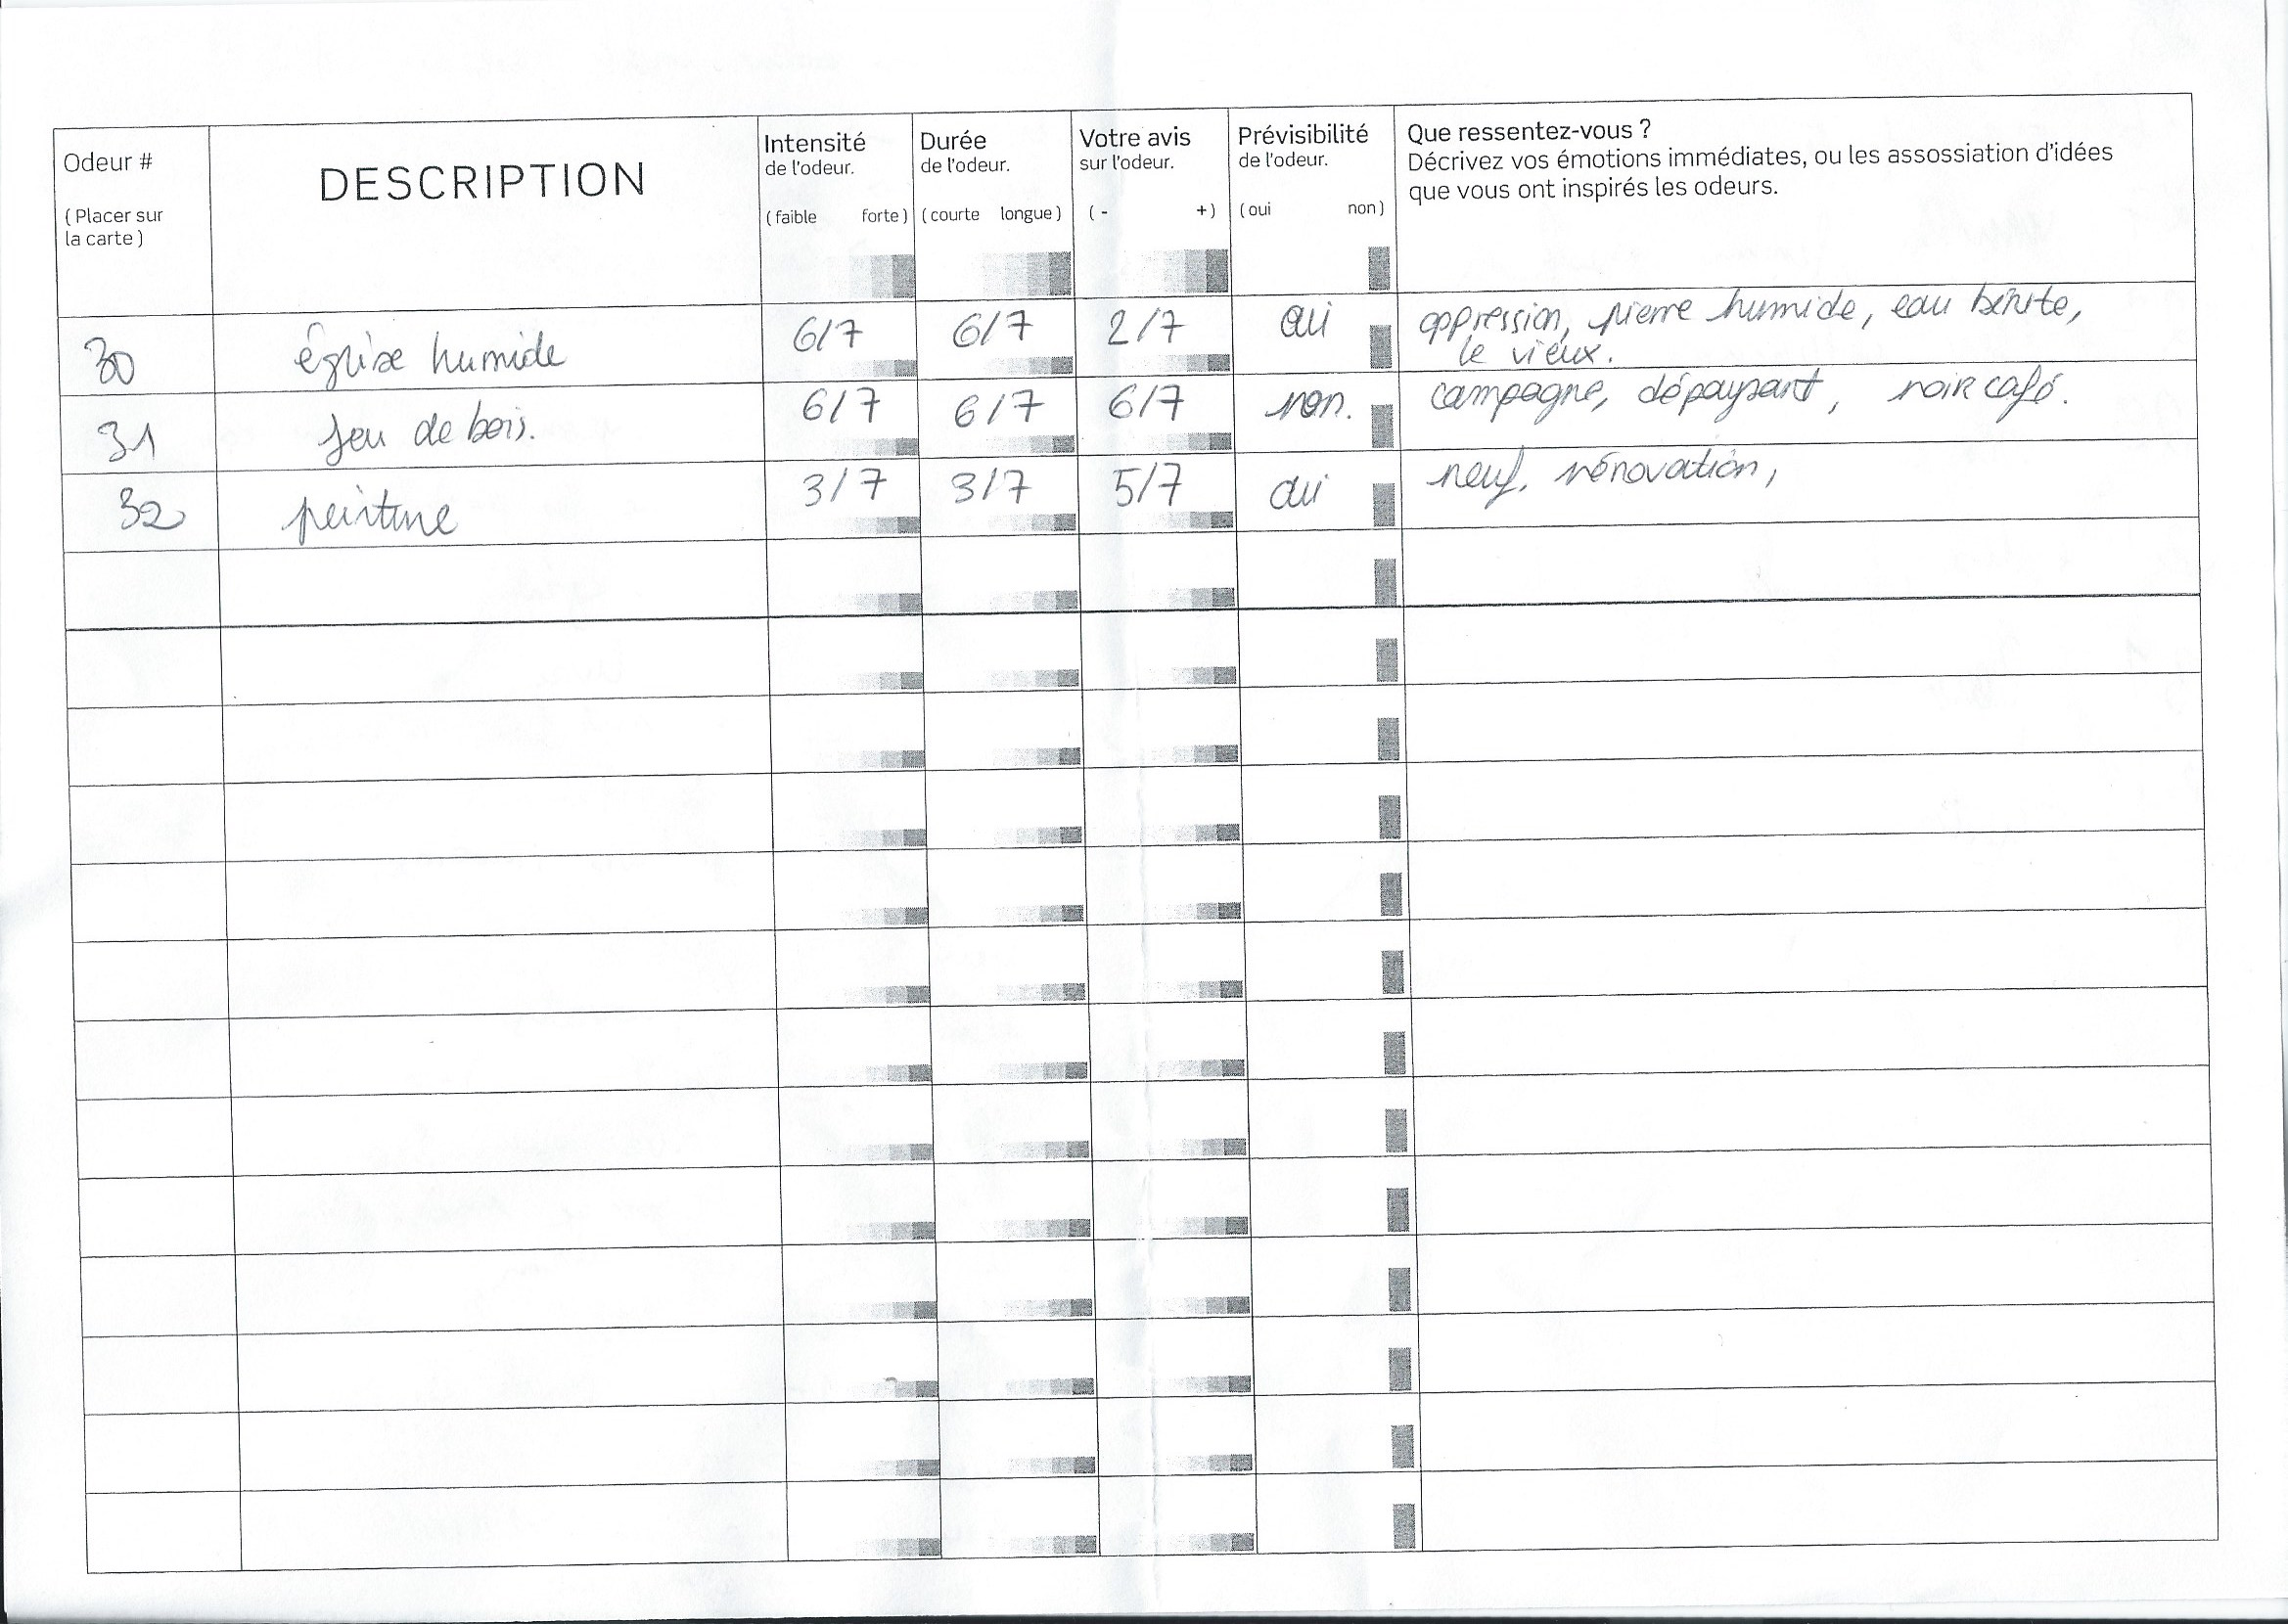 Odeur #
(Placer sur
la carte)
DESCRIPTION
Intensité
de l'odeur.
(faible forte)
Durée
de l'odeur.
(courte longue)
Votre avis
sur l'odeur.
(- +)
Prévisibilité
de l'odeur.
(oui non)
Que ressentez-vous ?
Décrivez vos émotions immédiates, ou les assossiation d'idées
que vous ont inspirés les odeurs.
30 église humide 6/7 6/7 2/7 oui oppression, pierre humide, eau bénite,
le vieux.
31 feu de bois. 6/7 6/7 6/7 non. campagne, dépaysant, noir café.
32 peinture 3/7 3/7 5/7 oui neuf, rénovation,